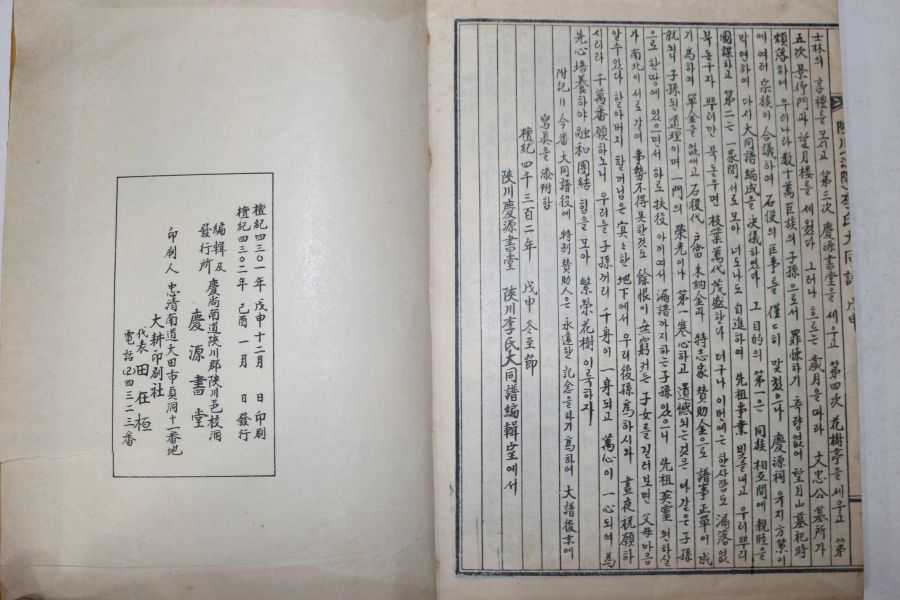 陜川(江陽)李氏大同譜 戊申
士林의 享禮를 모시고 第三次 慶源書堂을 세우고 第四次 花樹亭을 세우고 第
五次 景仰門과 望月楼를 세웠다 그러나 흐르는 歲月을 따라 文忠公 墓所가
頹落하여 우리나라 数十萬 巨族의 子孫으로서 罪悚하기 측량없어 望月山 墓祀時
에 여러 宗族이 合議하여 石役의 巨事를 僅僅히 맟쳤으나 慶源祠 유지 方策이
막연하여 다시 大同譜 編成을 決議하였다 그 目的의 第一은 同族相互間에 親睦을
圖謀하고 第二는 一家間 서로 모아 너도나도 自進하여 先祖事業 빛을내고 우리뿌리
북돋구자 뿌리만 북돋우면 枝葉萬代 茂盛하다 더구나 이번에는 한사람도 漏落없
기 爲하여 單金을 없애고 石役代 方當 未納金과 特志家 賛助金으로 譜事 正單이 成
就되니 子孫된 道理이며 一門의 榮光이나 第一 寒心하고 遺憾되는것은 나같은 子孫
으로 한땅에 있으면서 하로 扶役 아끼여서 漏譜까지하는 子孫 있으니 先祖英靈 편하실
가 南北이 서로 갈여 事勢不得 못한것도 餘恨이 無窮커든 子女를 길러보면 父母마음
알수있다 할아버지 할머님은 冥冥한 地下에서 우리後孫 爲하시와 晝夜祝願하
시리라 千萬番 願하노니 우리들 子孫끼리 千身이 一身되고 萬心이 一心되여 爲
先心 培養하야 融和團結 힘을모아 繁榮花樹 이룩하자
附記＝今番 大同譜役에 特别 賛助人은 永遠한 記念을하기 爲하여 大譜 後末에
寫眞을 添附함
檀紀四千三百二年 戊申 冬至節
陜川慶源書堂 陜川李氏大同譜編輯室에서
檀紀四三〇一年 戊申十二月 日 印刷
檀紀四三〇二年 己酉 一月 日 發行
編輯及發行所 慶尚南道陜川郡陜川邑校洞
慶源書堂
印刷人 忠清南道大田市貞洞十一番地
大耕印刷社
代表 田在桓
電話(2)四三二三番